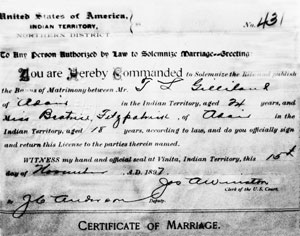 United States of America,
INDIAN TERRITORY,
NORTHERN DISTRICT.
No. 431
To Any Person Authorized by Law to Solemnize Marriage—Greeting
You are Hereby Commanded to Solemnize the Rite and publish
the Banns of Matrimony between Mr. T L Gilliland
of Adair in the Indian Territory, aged 24 years, and
Miss Beatrice Fitzpatrick of Adair in the
Indian Territory, aged 18 years, according to law, and do you officially sign
and return this License to the parties herein named.
WITNESS my hand and official seal at Vinita, Indian Territory, this 15th
day of November A.D. 1897
Jas A Winston
Clerk of the U.S. Court.
J C Anderson
Deputy.
CERTIFICATE OF MARRIAGE.